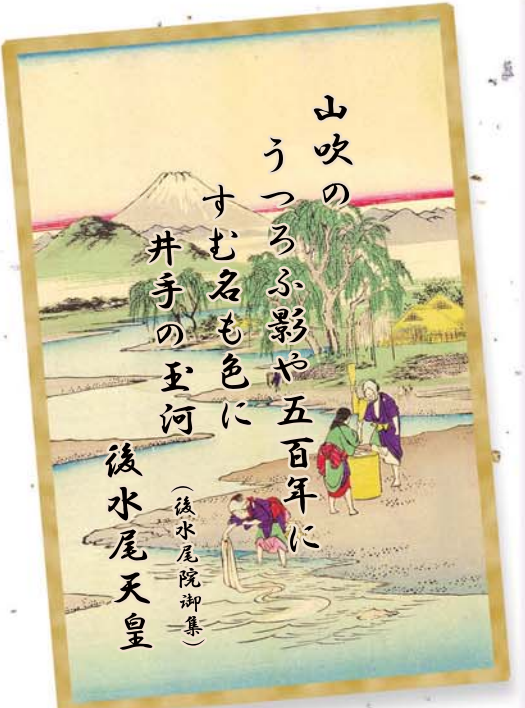 山吹の
うつろふ影や五百年に
すむ名も色に
井手の玉河
後水尾天皇
（後水尾院御集）